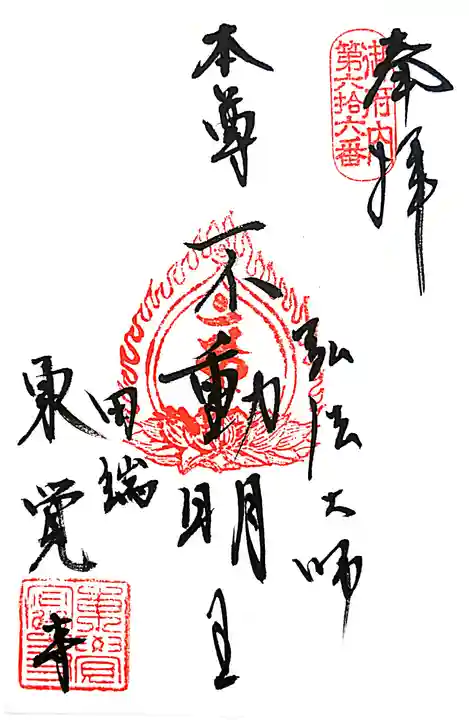 奉拝
御府内
第六拾六番
弘法大師
本尊
不動明王
田端
東覚寺